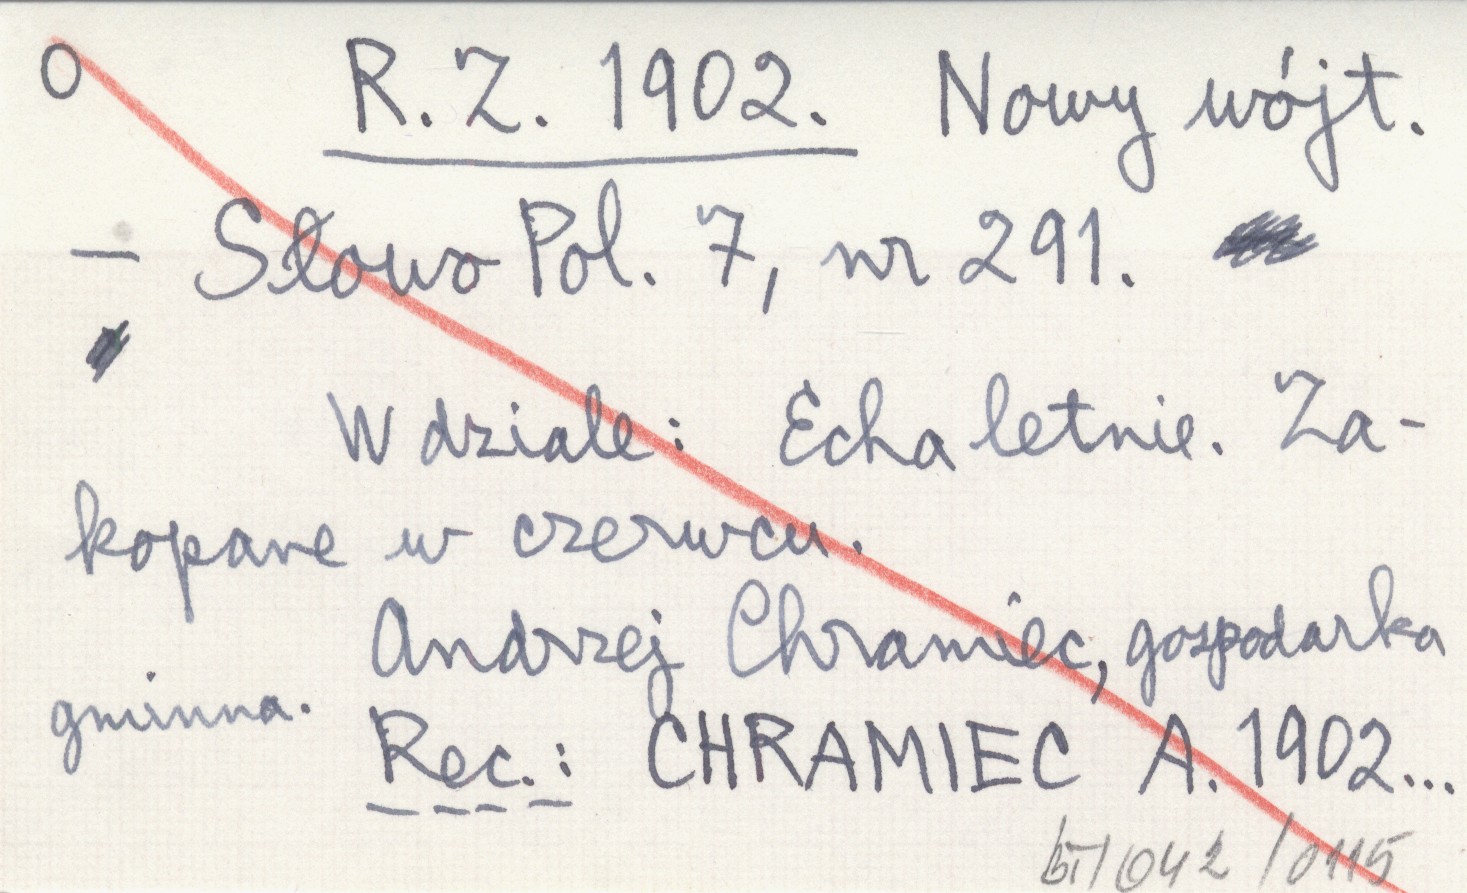 O R. Z. 1902. Nowy wójt.
— Słowo Pol. 7, nr 291.
W dziale: Echa letnie. Za-
kopane w czerwcu.
Andrzej Chramiec, gospodarka
gminna.
Rec.: CHRAMIEC A. 1902...
/042 /0115